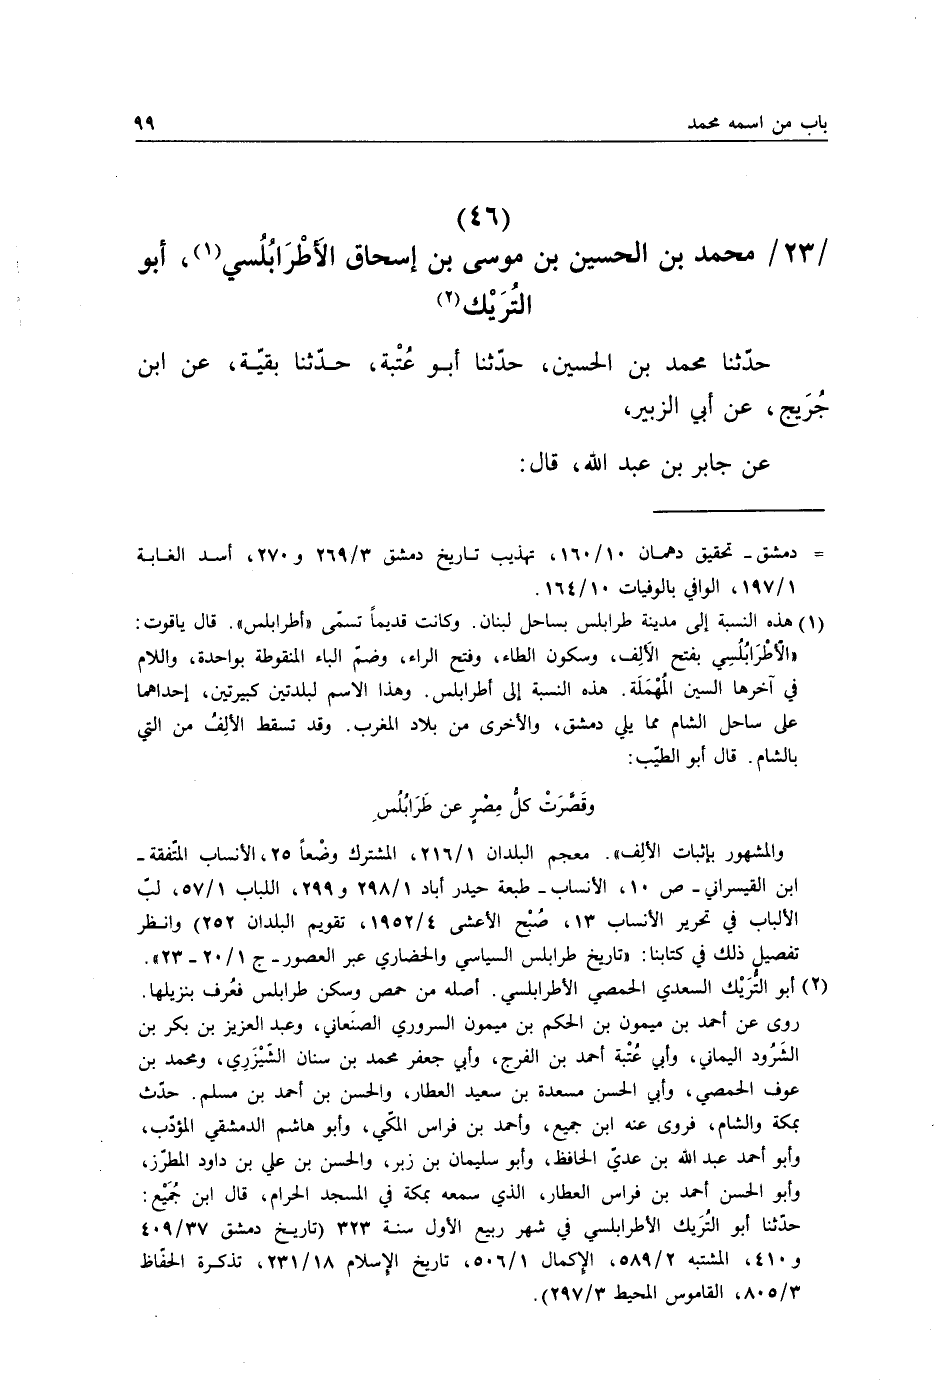 باب من اسمه محمد ٩٩
(٤٦)
/٢٣/ محمد بن الحسين بن موسى بن إسحاق الأَطْرَابُلُسي(١)، أبو
التُرَيْك(٢)
حدّثنا محمد بن الحسين، حدّثنا أبـو عُتْبة، حـدّثنا بقيّـة، عن ابن
جُرَيج، عن أبي الزبير،
عن جابر بن عبد الله، قال:
= دمشق ـ تحقيق دهمان ١٦٠/١٠، تهذيب تـاريخ دمشق ٢٦٩/٣ و٢٧٠، أسـد الغـابـة
١٩٧/١، الوافي بالوفيات ١٦٤/١٠.
(١) هذه النسبة إلى مدينة طرابلس بساحل لبنان. وكانت قديماً تسمّى «أطرابلس». قال ياقوت:
«الأَطْرَابُلُسِي بفتح الألِف، وسكون الطاء، وفتح الراء، وضمّ الباء المنقوطة بواحدة، واللام
في آخرها السين المُهْمَلَة. هذه النسبة إلى أطرابلس. وهذا الاسم لبلدتين كبيرتين، إحداهما
على ساحل الشام مما يلي دمشق، والأخرى من بلاد المغرب. وقد تسقط الألِفُ من التي
بالشام. قال أبو الطيّب:
وقَصَّرَتْ كلُّ مِصْرٍ عن طَرَابُلُسِ
والمشهور بإثبات الألِف». معجم البلدان ٢١٦/١، المشترك وضْعاً ٢٥، الأنساب المتّفقة ـ
ابن القيسراني ـ ص ١٠، الأنساب ـ طبعة حيدر أباد ٢٩٨/١ و٢٩٩، اللباب ٥٧/١، لبّ
الألباب في تحرير الأنساب ١٣، صُبْح الأعشى ١٩٥٢/٤، تقويم البلدان ٢٥٢) وانـظر
تفصيل ذلك في كتابنا: «تاريخ طرابلس السياسي والحضاري عبر العصور ـ ج ٢٠/١ ـ ٢٣».
(٢) أبو التُّرَيْك السعدي الحمصي الأطرابلسي. أصله من حمص وسكن طرابلس فعُرف بنزيلها.
روى عن أحمد بن ميمون بن الحكم بن ميمون السروري الصنعاني، وعبد العزيز بن بكر بن
الشَرُود اليماني، وأبي عُتْبة أحمد بن الفرج، وأبي جعفر محمد بن سنان الشَّيْزَري، ومحمد بن
عوف الحمصي، وأبي الحسن مسعدة بن سعيد العطار، والحسن بن أحمد بن مسلم. حدّث
بمكة والشام، فروى عنه ابن جميع، وأحمد بن فراس المكّي، وأبو هاشم الدمشقي المؤدّب،
وأبو أحمد عبد الله بن عديّ الحافظ، وأبو سليمان بن زبر، والحسن بن علي بن داود المطرّز،
وأبو الحسن أحمد بن فراس العطار، الذي سمعه بمكة في المسجد الحرام، قال ابن جُمَيْع:
حدّثنا أبو التُرَيك الأطرابلسي في شهر ربيع الأول سنـة ٣٢٣ (تاريـخ دمشق ٤٠٩/٣٧
و٤١٠، المشتبه ٥٨٩/٢، الإكمال ٥٠٦/١، تاريخ الإسلام ٢٣١/١٨، تذكـرة الحفّاظ
٨٠٥/٣، القاموس المحيط ٢٩٧/٣).